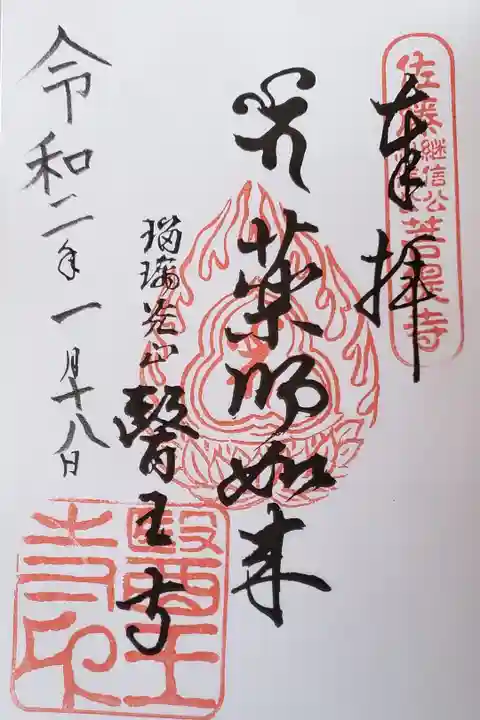 奉拝
佐藤継信公
菩提寺
薬師如来
瑠璃光山
醫王寺
醫王寺印
令和二年一月十八日